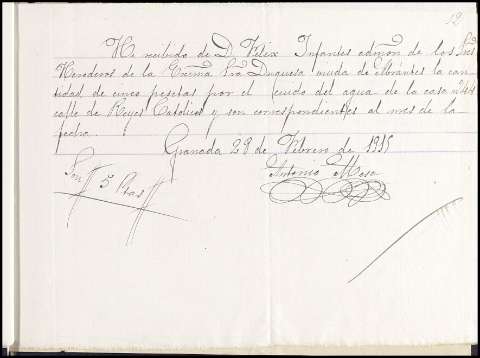 12
He recibido de D. Felix Infantes admon de los Sres
Herederos de la Excma Sra Duquesa viuda de Abrantes la can-
tidad de cinco pesetas por el cuido del agua de la casa nº 44
calle de Reyes Catolicos y son correspondientes al mes de la
fecha.
Granada 28 de Febrero de 1915
Antonio Mesa
Son 5 Ptas